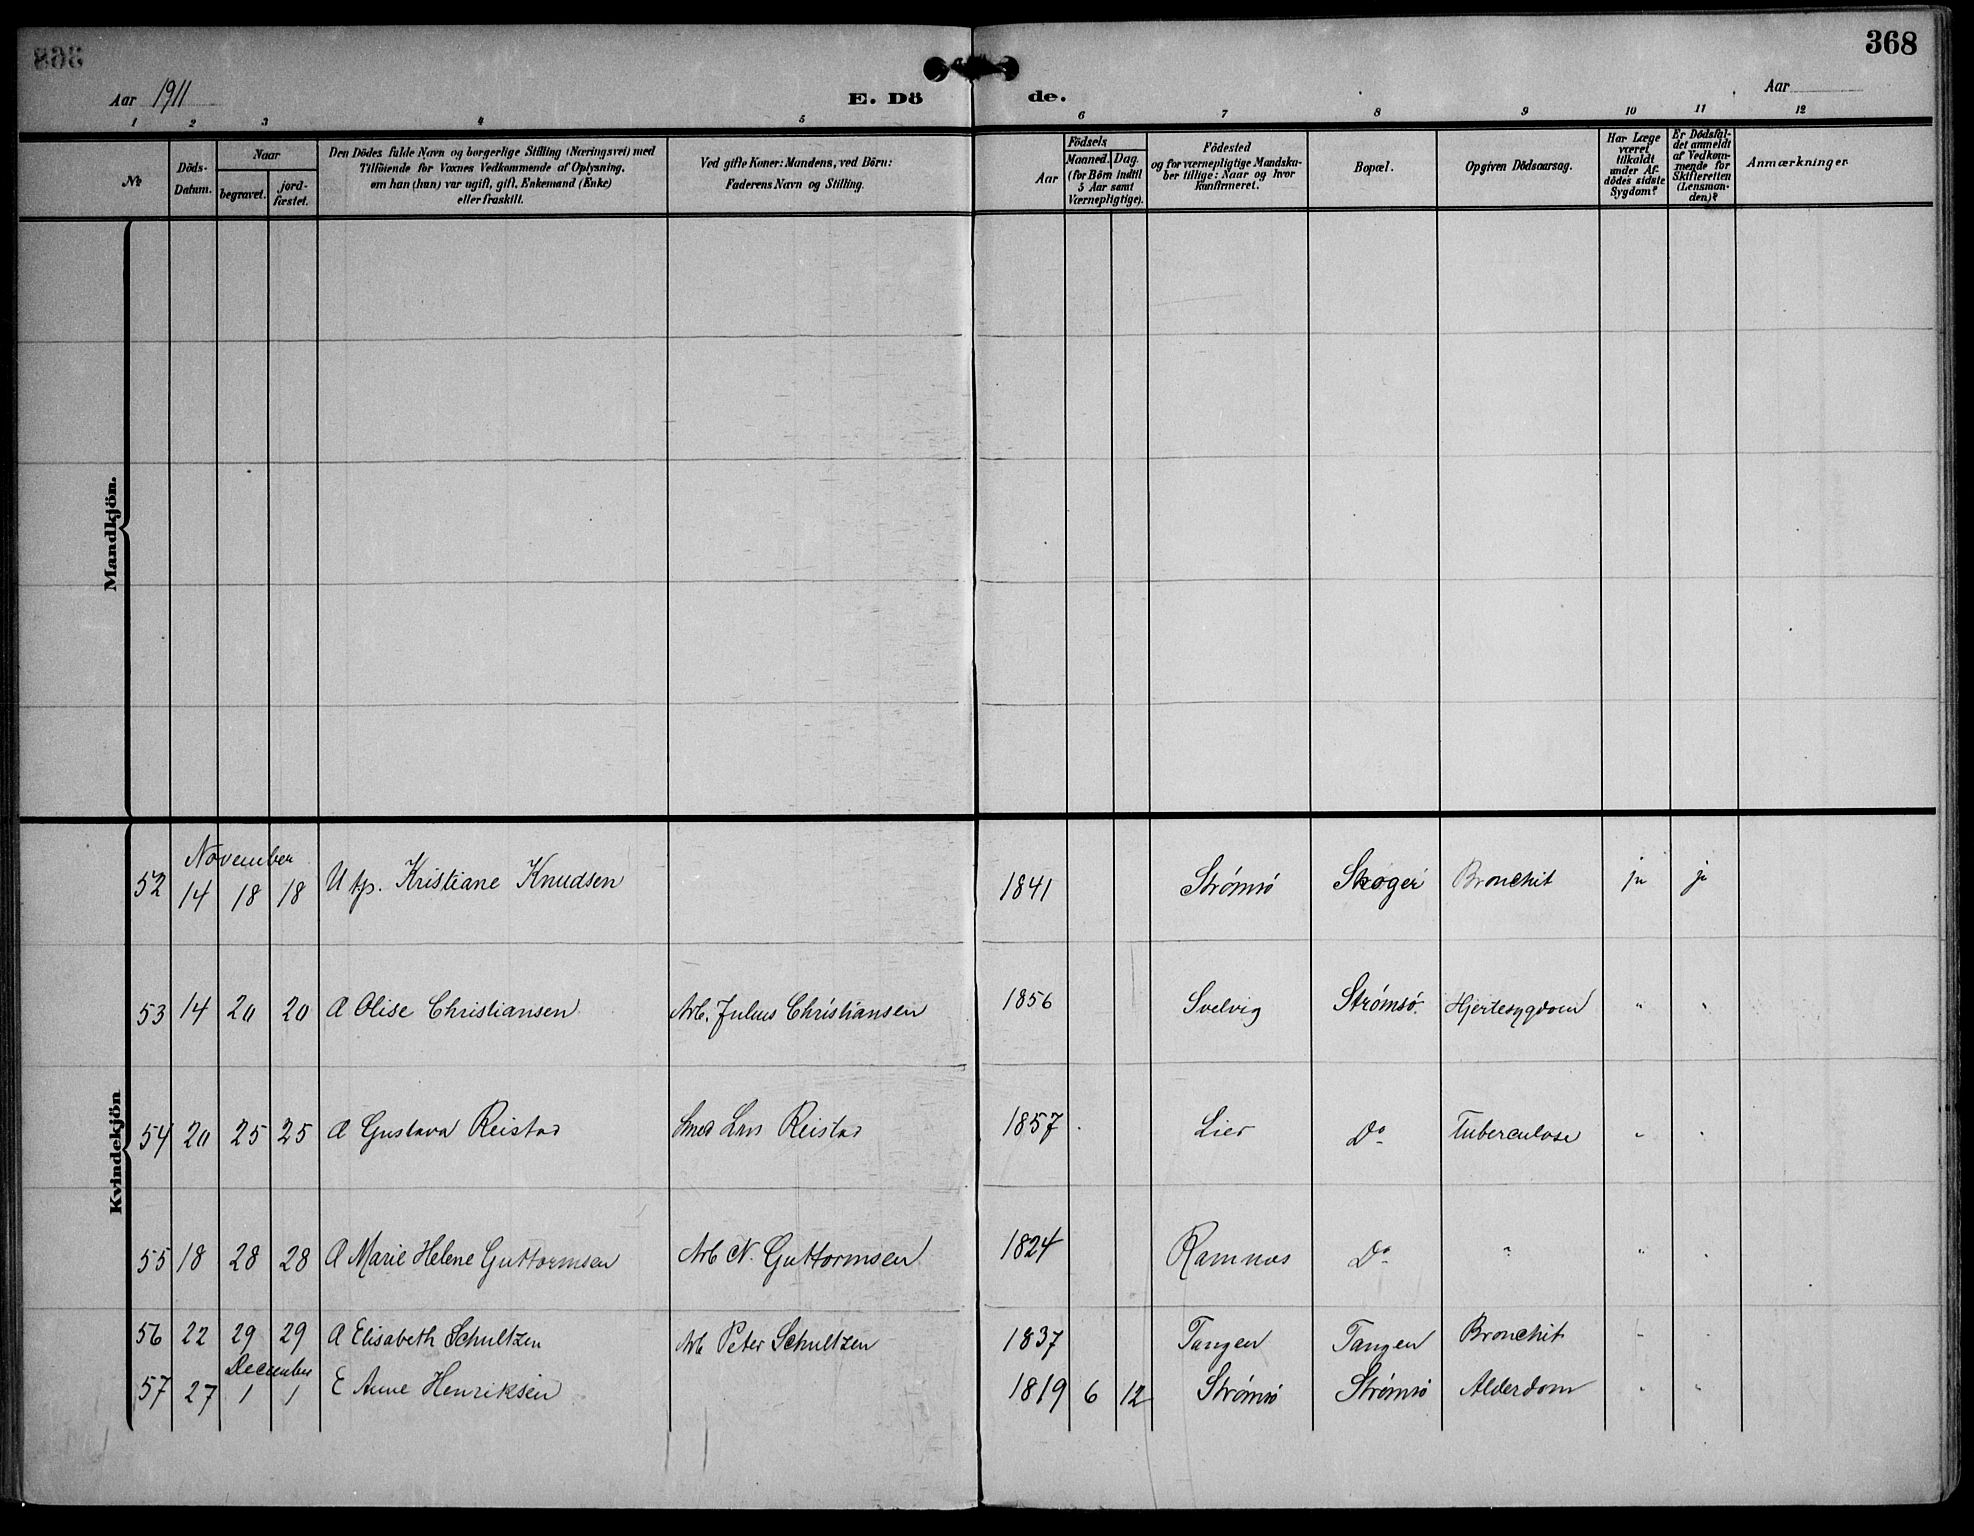 368
Aar 1911 E. Dö de. Aar
1 2 3 4 5 6 7 8 9 10 11 12
№
Döds-Datum.
Naar
begravet.
jord-fæstet.
Den Dödes fulde Navn og borgerlige Stilling (Næringsvei) med
Tilföiende for Voxnes Vedkommende af Oplysning,
om han (hun) var ugift, gift, Enkemand (Enke)
eller fraskilt.
Ved gifte Koner: Mandens, ved Börn:
Faderens Navn og Stilling.
Födsels
Aar
Maaned. Dag.
(for Börn indtil
5 Aar samt
Værnepligtige).
Födested
og for værnepligtige Mandska-
ber tillige: Naar og hvor
konfirmeret.
Bopæl.
Opgiven Dödsaarsag.
Har Læge
været
tilkaldt
under Af-
dödes sidste
Sygdom?
Er Dödsfal-
det anmeldt
af Vedkom-
mende for
Skifteretten
(Lensman-
den)?
Anmærkninger
Mandkjön.
Kvindekjön
November
52 14 18 18 U Kristiane Knudsen 1841 Strømsø Skoger Bronchit ja ja
53 14 20 20 G Olise Christiansen Arb. Julius Christiansen 1856 Svelvig Strømsø. Hjertesygdom " "
54 20 25 25 G Gustava Reistad Smed Lars Reistad 1857 Lier Do Tuberculose " "
55 18 28 28 G Marie Helene Guttormsen Arb N. Guttormsen 1824 Ramnes Do " " "
56 22 29 29 G Elisabeth Schultzen Arb Peter Schultzen 1837 Tangen Tangen Bronchit " "
December
57 27 1 1 E Anne Henriksen 1819 6 12 Strømsø Strømsø Alderdom " "